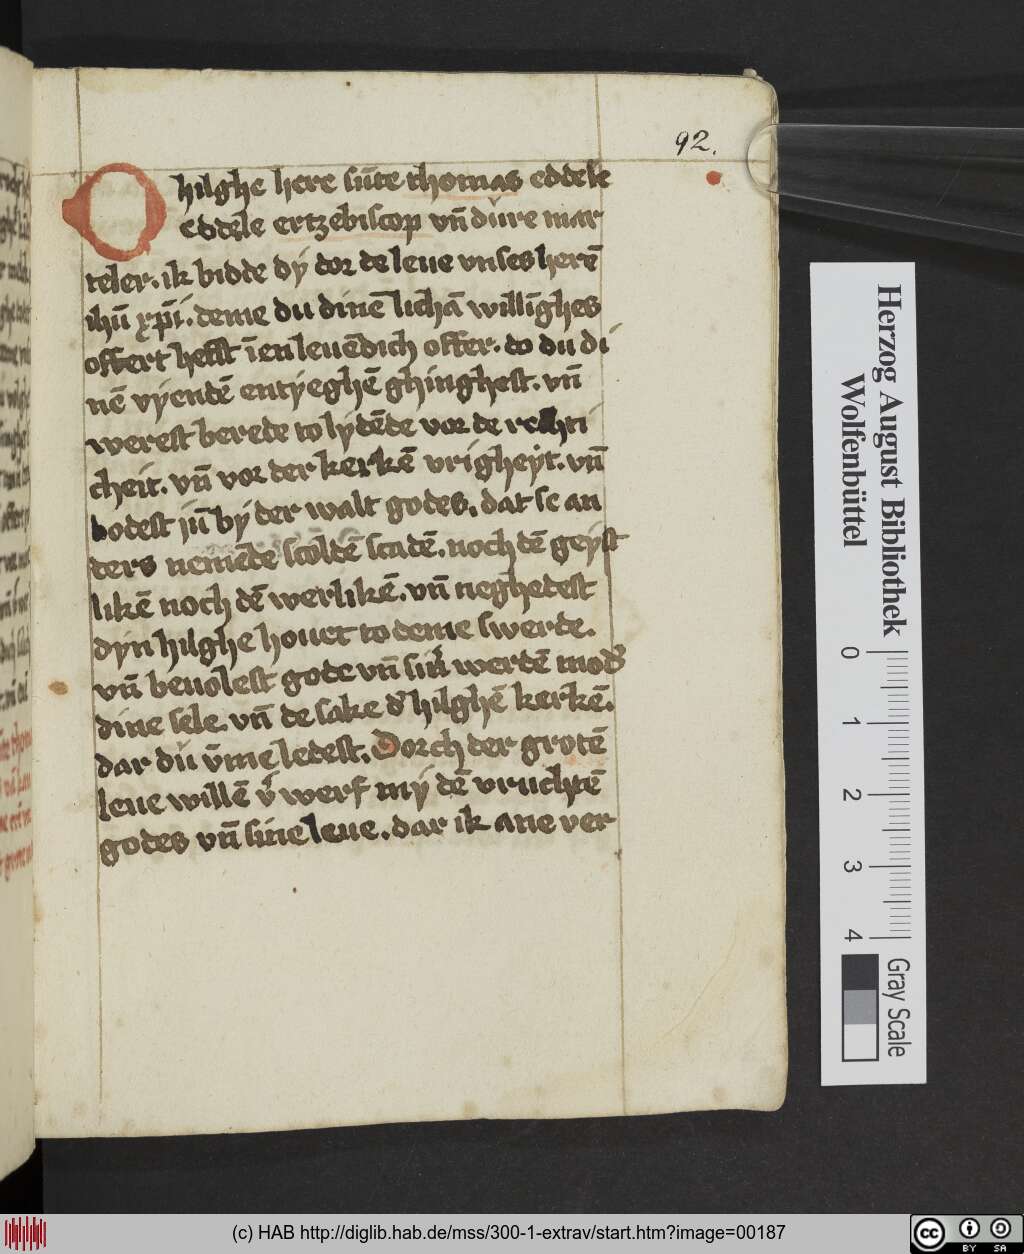 92.
O hilghe here sūte thomas eddele
eddele ertzebiscop vn̄ dure mar
teler. ik bidde dy dor de leue vnses herē
ihū xp̄i. deme du dinē lichā willīghes
offert hefst īen leuēdich offer. do du di
nē vyendē entyeghē ghinghest. vn̄
werest berede to lydēde vor de rechti
cheit. vn̄ vor der kerkē vrigheyt. vn̄
bodest jn̄ by der walt godes. dat se an
ders nemēde scoldē scadē. noch dē geyst
likē noch dē werlikē. vn̄ neghedest
dyn hilghe houet to deme swerde.
vn̄ beuolest gode vn̄ werdē mod
dine sele. vn̄ de sake d' hilghē kerkē.
dar du v̄me ledest. Dorch der grotē
leue willē v'werf my dē vruchtē
godes vn̄ sine leue. dar ik ane ver
Herzog August Bibliothek
Wolfenbüttel
0 1 2 3 4
Gray Scale
(c) HAB http://diglib.hab.de/mss/300-1-extrav/start.htm?image=00187
cc BY SA